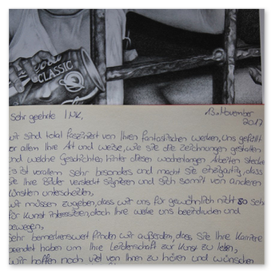 Coca-Cola
CLASSIC
Sehr geehrte INK,
13. November
2017
wir sind total fasziniert von Ihren fantastischen Werken. Uns gefällt
vor allem Ihre Art und Weise, wie Sie die Zeichnungen gestalten
und welche Geschichte hinter diesen wochenlangen Arbeiten stecken
ist vorallem sehr besonders und macht Sie einzigartig, dass
Sie Ihre Bilder versteckt signieren und sich somit von anderen
Künstlern unterscheiden.
Wir müssen zugeben, dass wir uns für gewöhnlich nicht so sehr
für Kunst interessieren, doch Ihre Werke uns beeindrucken und
bewegen.
Sehr bemerkenswert finden wir außerdem, dass Sie Ihre Karriere
beendet haben um Ihre Leidenschaft zur Kunst zu leben,
wir hoffen noch viel von Ihnen zu hören und